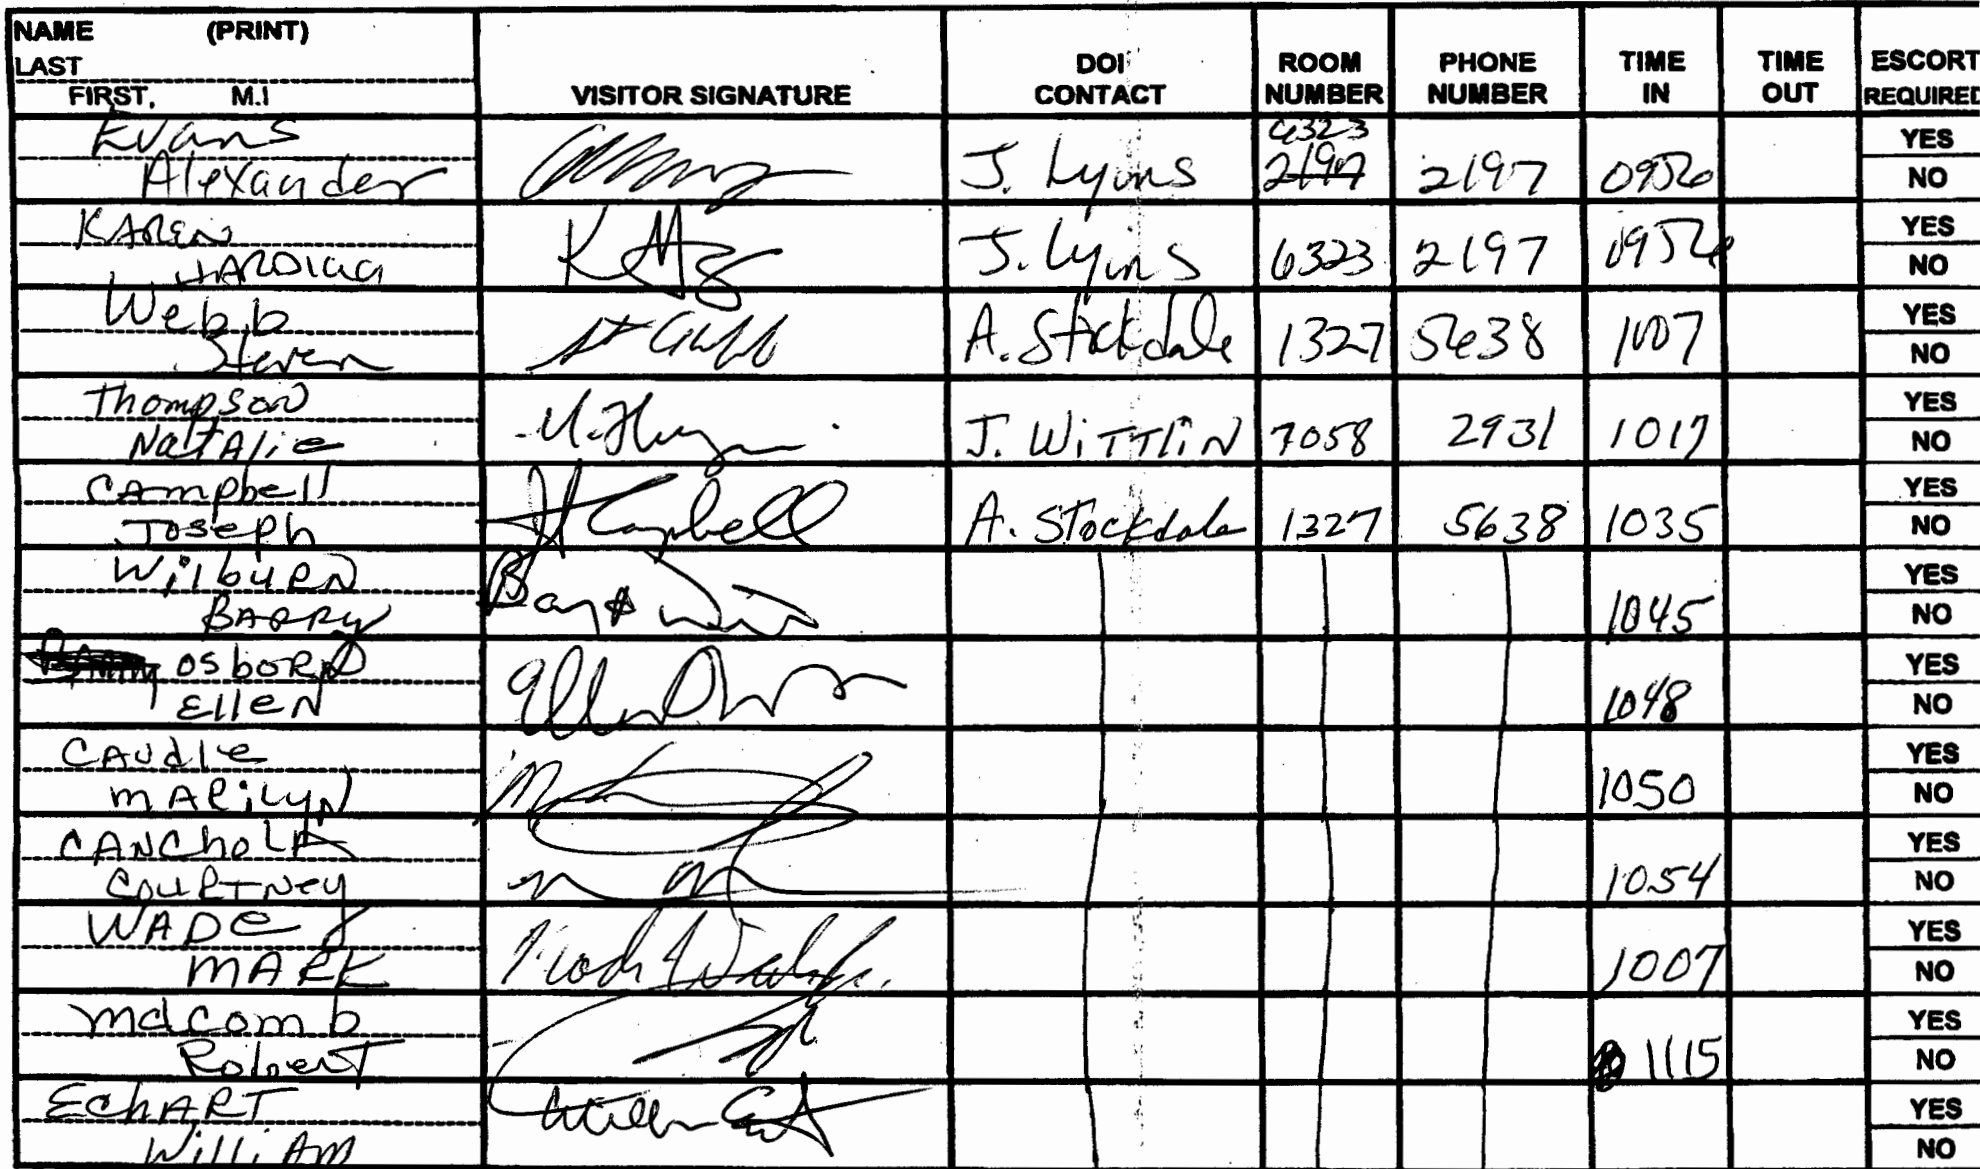 NAME (PRINT)
LAST
FIRST, M.I
VISITOR SIGNATURE
DOI CONTACT
ROOM NUMBER
PHONE NUMBER
TIME IN
TIME OUT
ESCORT REQUIRED
Evans
Alexander
J. Lyons 6323 2197 2197 0956 YES
NO
KAREN
HARDIGG
J. Lyons 6323 2197 0956 YES
NO
Webb
Steven
A. Stockdale 1327 5638 1007 YES
NO
Thompson
NatAlie
J. WiTTliN 7058 2931 1017 YES
NO
CAmpbell
Joseph
J Campbell A. Stockdale 1327 5638 1035 YES
NO
WilbuRN
BARRy
1045 YES
NO
OsboRN
EllEN
1048 YES
NO
CAUdle
mARilyN
1050 YES
NO
CANChoLA
COURTNey
1054 YES
NO
WADe
mARK
1007 YES
NO
mdcomb
RoberT
1115 YES
NO
EChART
WilliAm
YES
NO